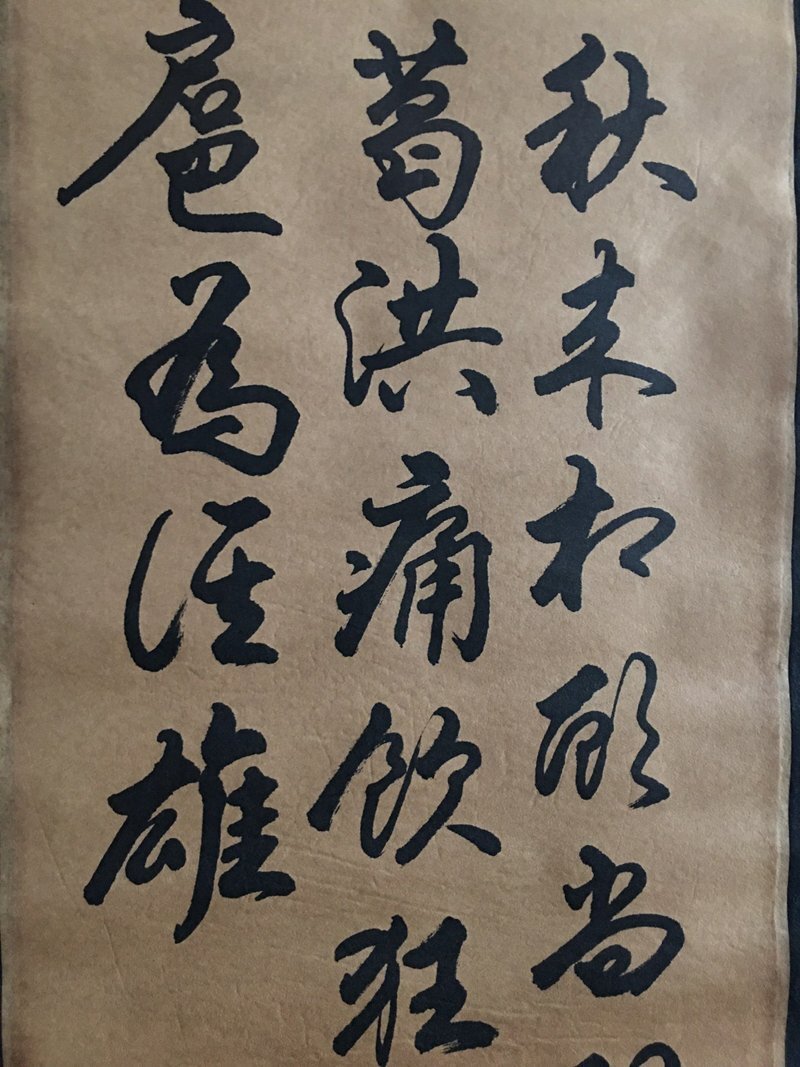 秋来相顾尚
葛洪痛飲狂
扈為誰雄